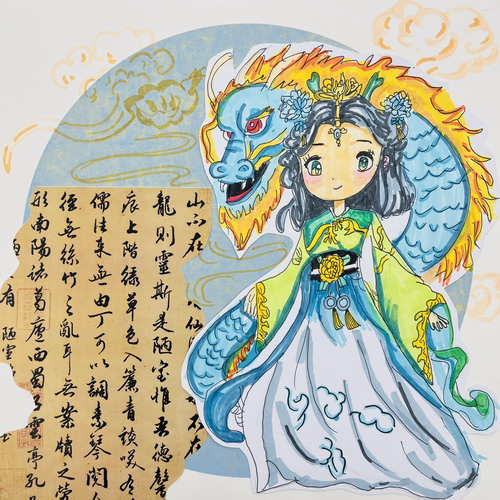 山不在仙
龍則靈斯是陋室惟吾德馨
痕上階綠草色入簾青談笑有
儒往来無白丁可以調素琴閱
經無絲竹之亂耳無案牘之勞
形南陽諸葛廬西蜀子雲亭孔
有陋室